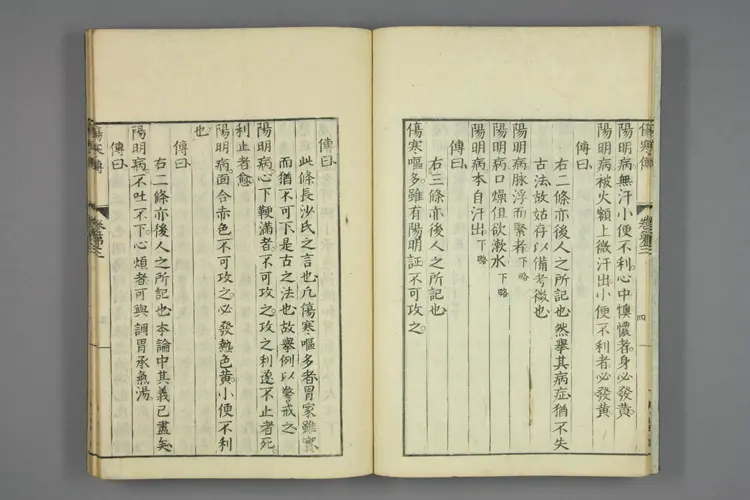 傷寒傳
陽明病無汗小便不利心中懊憹者身必發黃
陽明病被火額上微汗出小便不利者必發黃
傳曰
右二條亦後人之所記也然舉其病症猶不失
古法故姑存以備考徵也
陽明病脉浮而緊者下略
陽明病口燥但欲漱水下略
陽明病本自汗出下略
傳曰
右三條亦後人之所記也
傷寒嘔多雖有陽明証不可攻之
傳曰
此條長沙氏之言也凡傷寒嘔多者胃家雖實
而猶不可下是古之法也故舉例以警戒之
陽明病心下鞕滿者不可攻之攻之利遂不止者死
利止者愈
陽明病面合赤色不可攻之必發熱色黃小便不利
也
傳曰
右二條亦後人之所記也本論中其義已盡矣
陽明病不吐不下心煩者可與調胃承氣湯
傳曰
傷寒傳